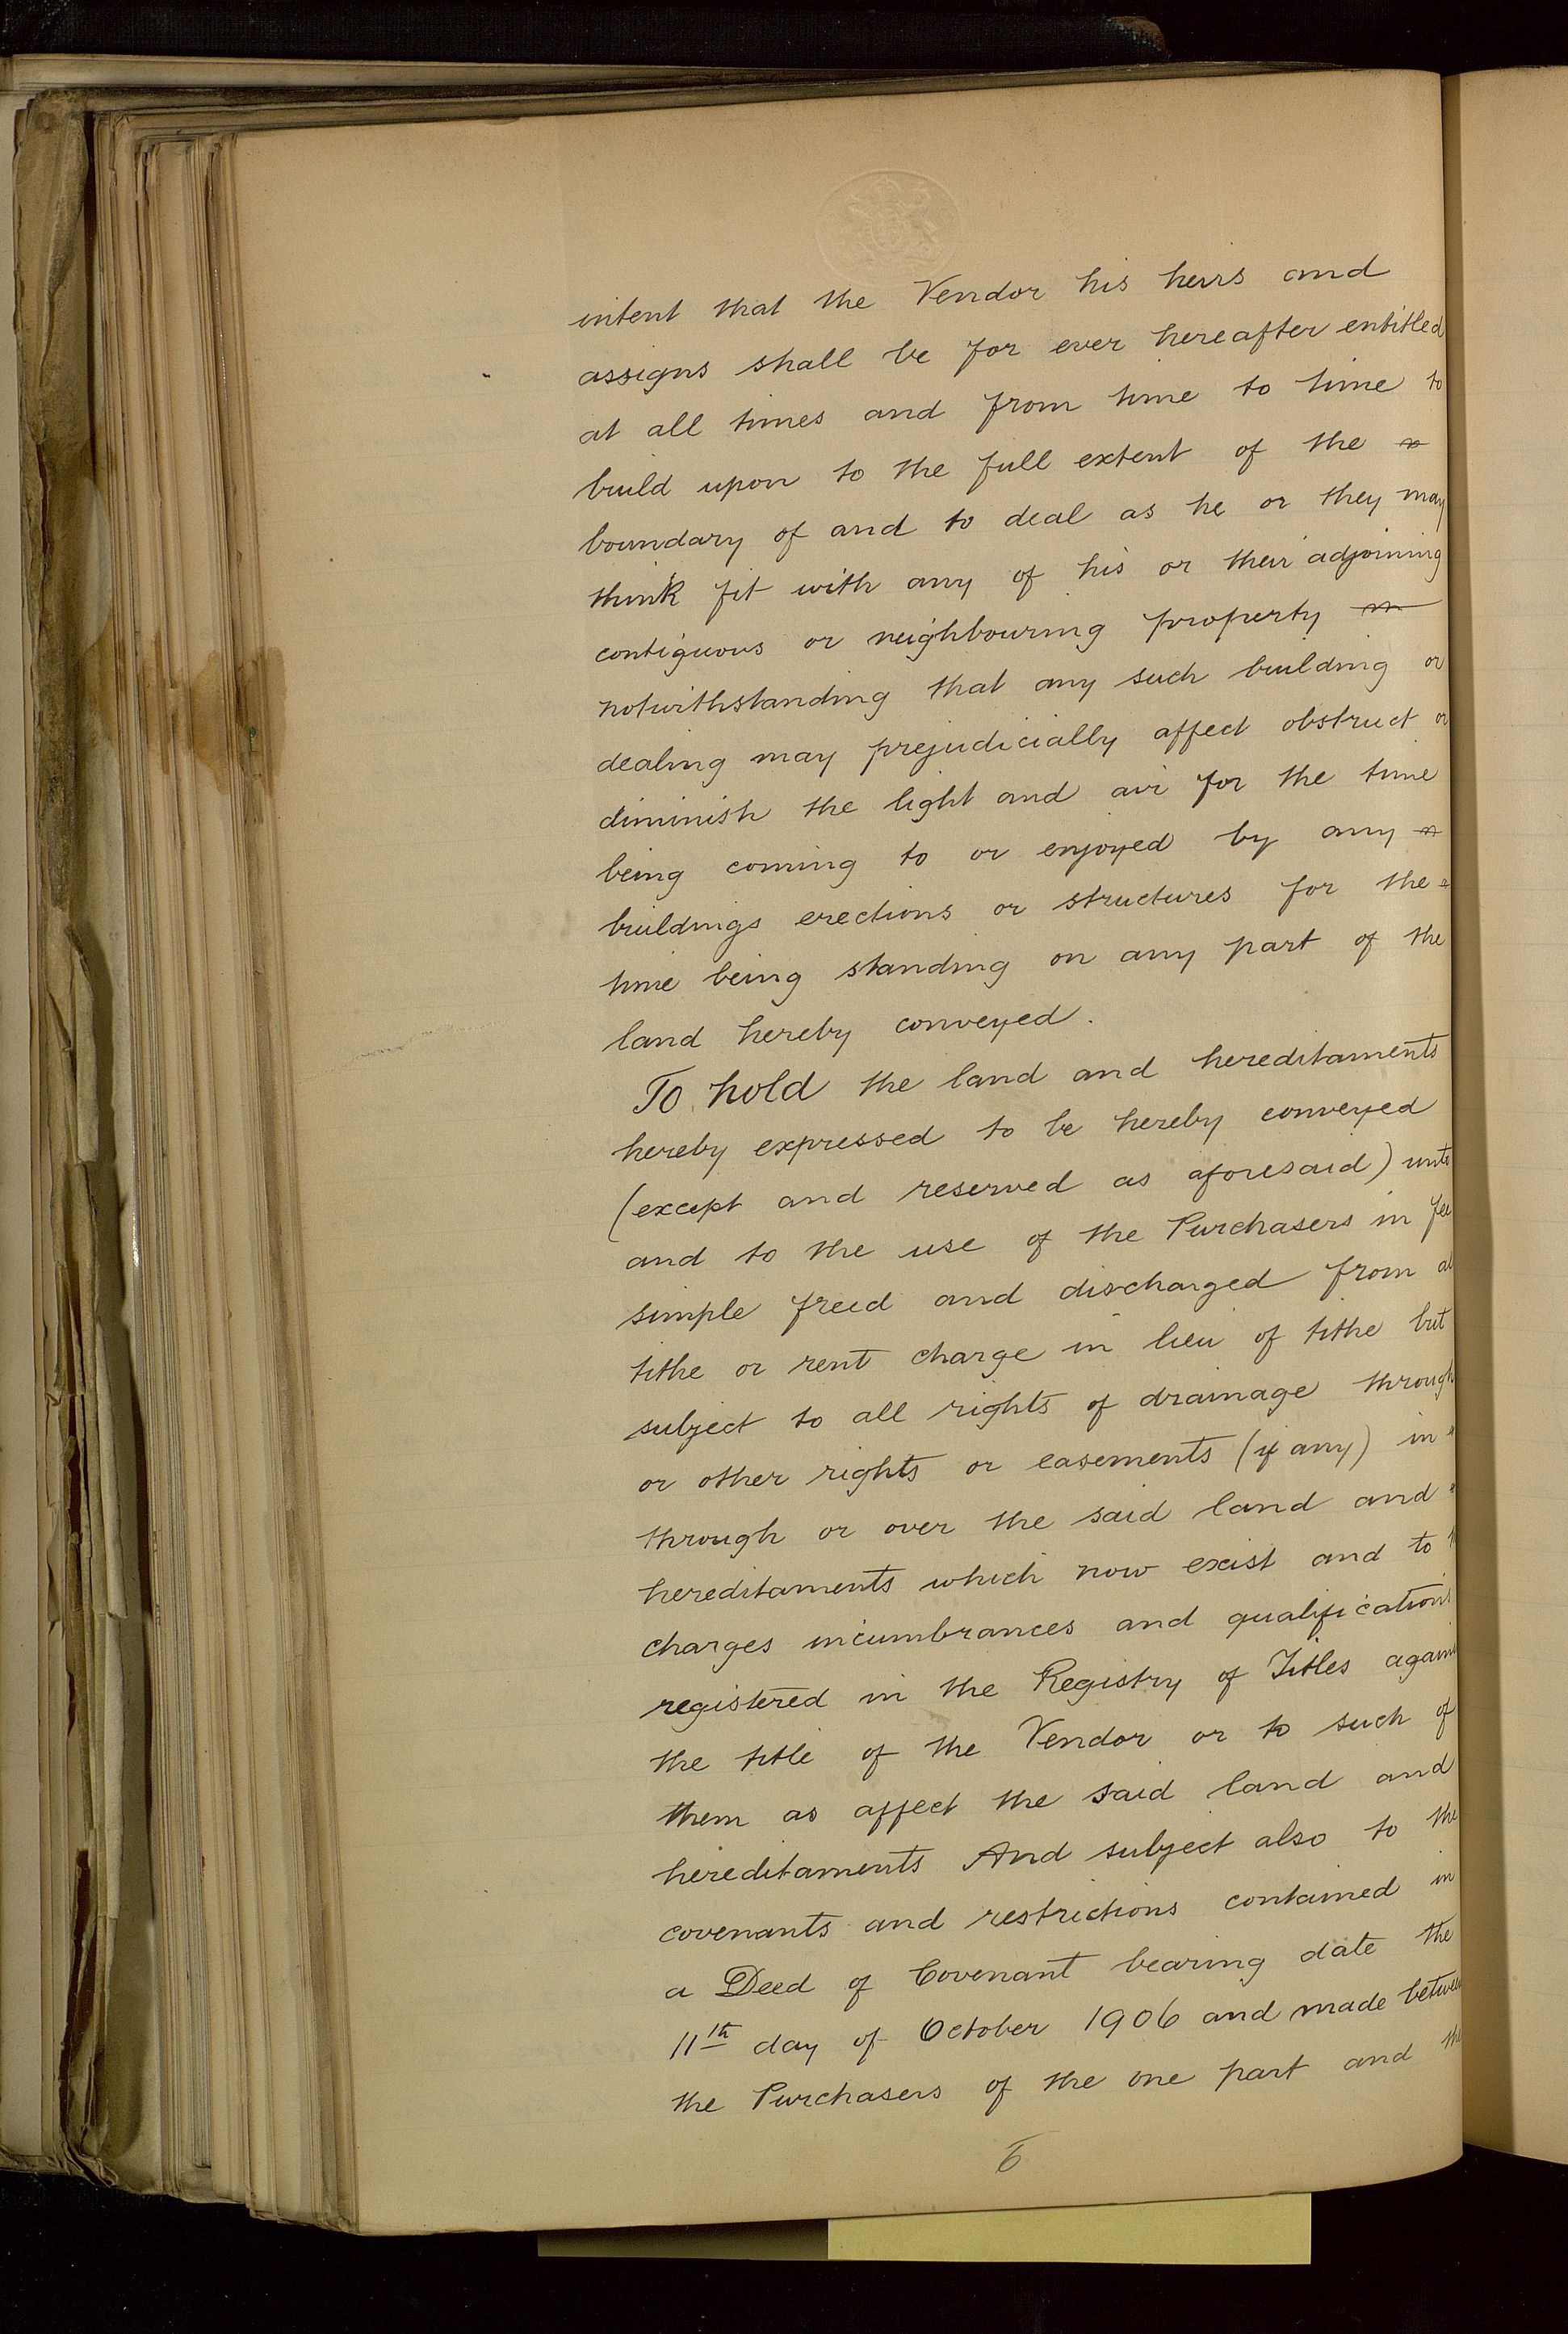 intent that the Vendor his heirs and
assigns shall be for ever hereafter entitled
at all times and from time to time to
build upon to the full extent of the
boundary of and to deal as he or they may
think fit with any of his or their adjoining
contiguous or neighbouring property
notwithstanding that any such building or
dealing may prejudicially affect obstruct or
diminish the light and air for the time
being coming to or enjoyed by any
buildings erections or structures for the
time being standing on any part of the
land hereby conveyed.
To hold the land and hereditaments
hereby expressed to be hereby conveyed
(except and reserved as aforesaid) unto
and to the use of the Purchasers in fee
simple freed and discharged from al
tithe or rent charge in lieu of tithe but
subject to all rights of drainage through
or other rights or easements (if any) in
through or over the said land and
hereditaments which now exist and to
charges incumbrances and qualifications
registered in the Registry of Titles agains
the title of the Vendor or to such of
them as affect the said land and
hereditaments And subject also to the
covenants and restrictions contained in
a Deed of Covenant bearing date the
11th day of October 1906 and made between
the Purchasers of the one part and the
6